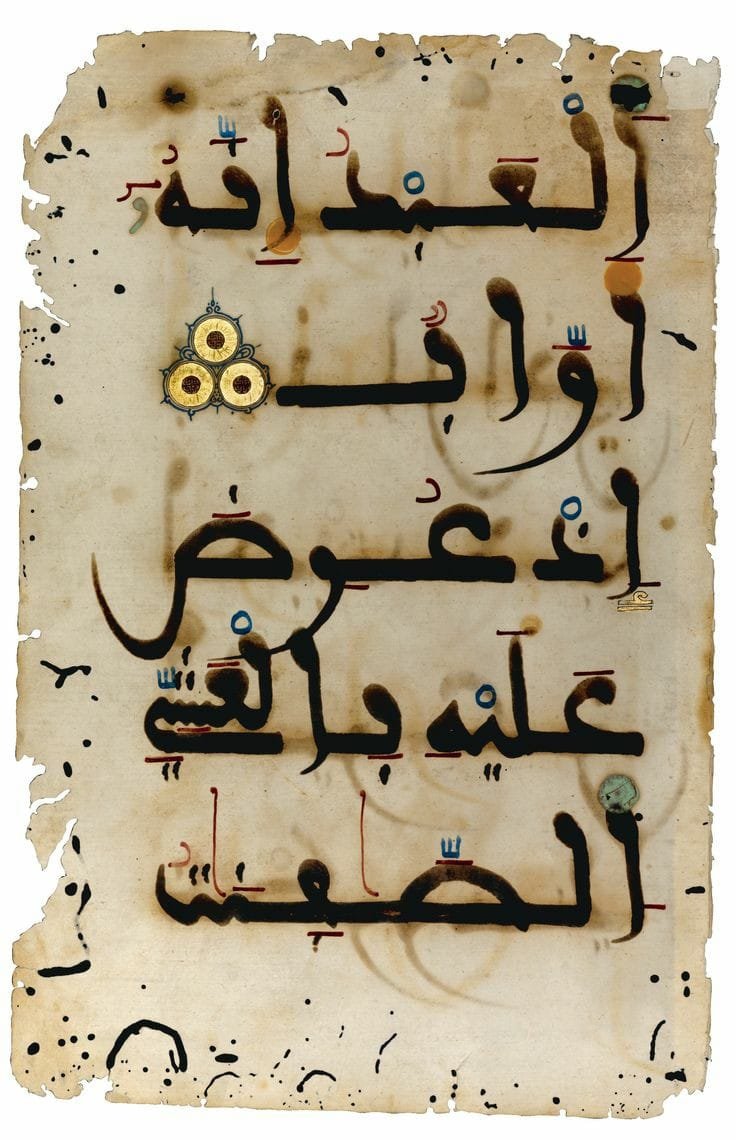 اَلْعَبْدُ إِنَّهُ
أَوَّابٌ
إِذْ عُرِضَ
عَلَيْهِ بِالْعَشِيِّ
اَلصَّٰفِنَٰتُ